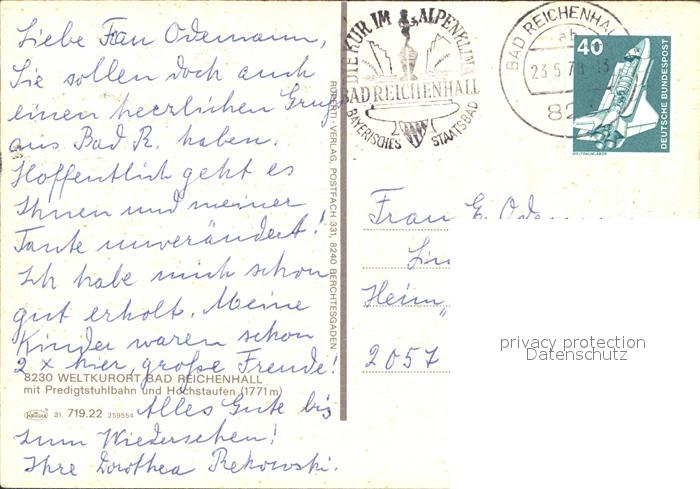 Liebe Frau Odemann,
Sie sollen doch auch
einen herzlichen Gruß
aus Bad R. haben.
Hoffentlich geht es
Ihnen und meiner
Tante unverändert!
Ich habe mich schon
gut erholt. Meine
Kinder waren schon
2 x hier, große Freude!
8230 WELTKURORT BAD REICHENHALL
mit Predigtstuhlbahn und Hochstaufen (1771m)
31. 719.22 259554
Alles Gute bis
zum Wiedersehen!
Ihre Dorothea Rekowski.
VERLAG, POSTFACH 331, 8240 BERCHTESGADEN
DIE KUR IM ALPENKLIMA
BAD REICHENHALL
BAYERISCHES STAATSBAD
BAD REICHENHALL
23.5.78-13
40
DEUTSCHE BUNDESPOST
WELTRAUMLABOR
Frau E. Odem
Heim „
2057
privacy protection
Datenschutz